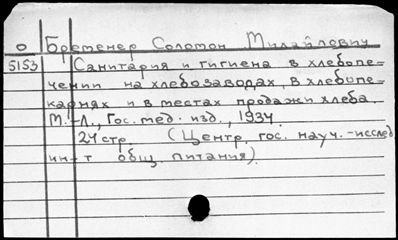 О Бретенер Соломон Михайлович
5153 Санитария и гигиена в хлебопе=
чении на хлебозаводах, в хлебопе=
карнях и в местах продажи хлеба.
М.-Л., Гос. мед. изд., 1934.
24 стр. (Центр. гос. науч.-исслед.
ин-т общ. питания).